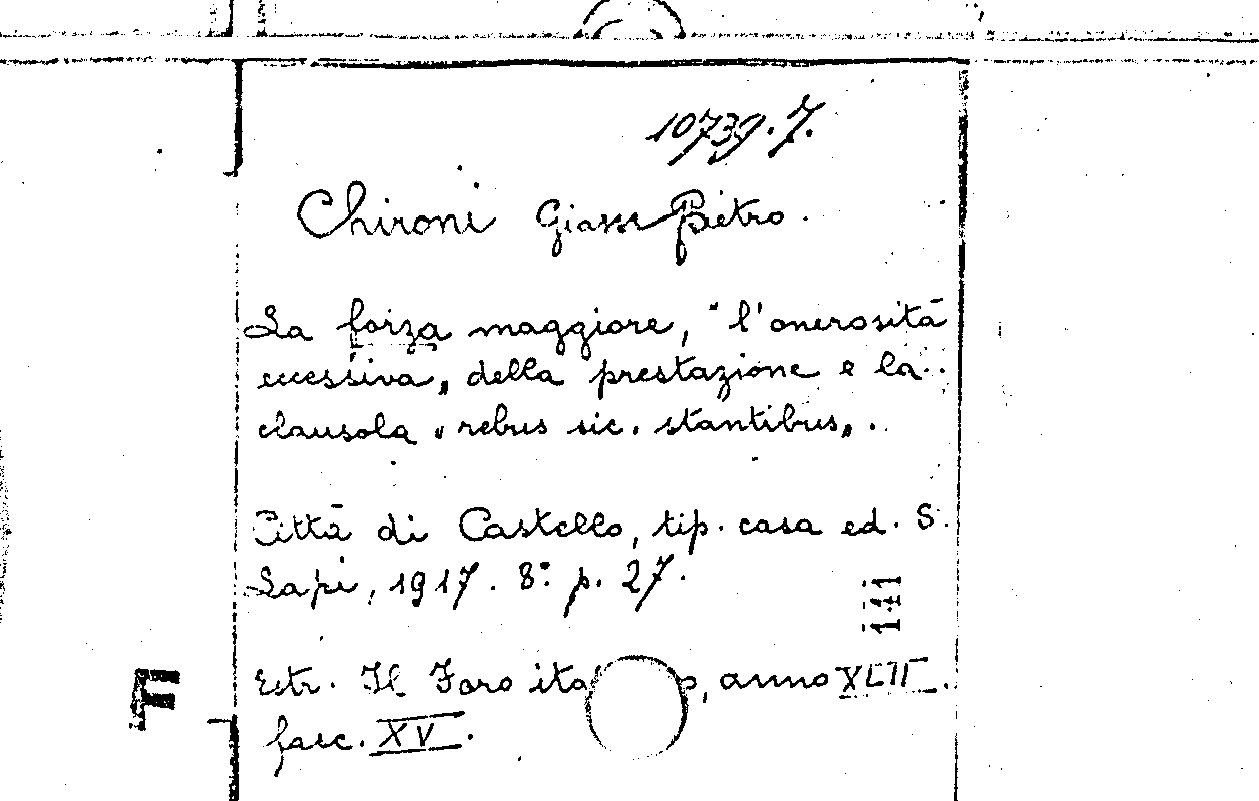 10739.7.
Chironi Giam Pietro.
La forza maggiore, "l'onerosità
eccessiva„ della prestazione e la
clausola "rebus sic. stantibus„.
Città di Castello, tip. casa ed. S.
Lapi, 1917. 8° p. 27.
111
Estr. Il Foro ita o, anno XLII.
fasc. XV.
F